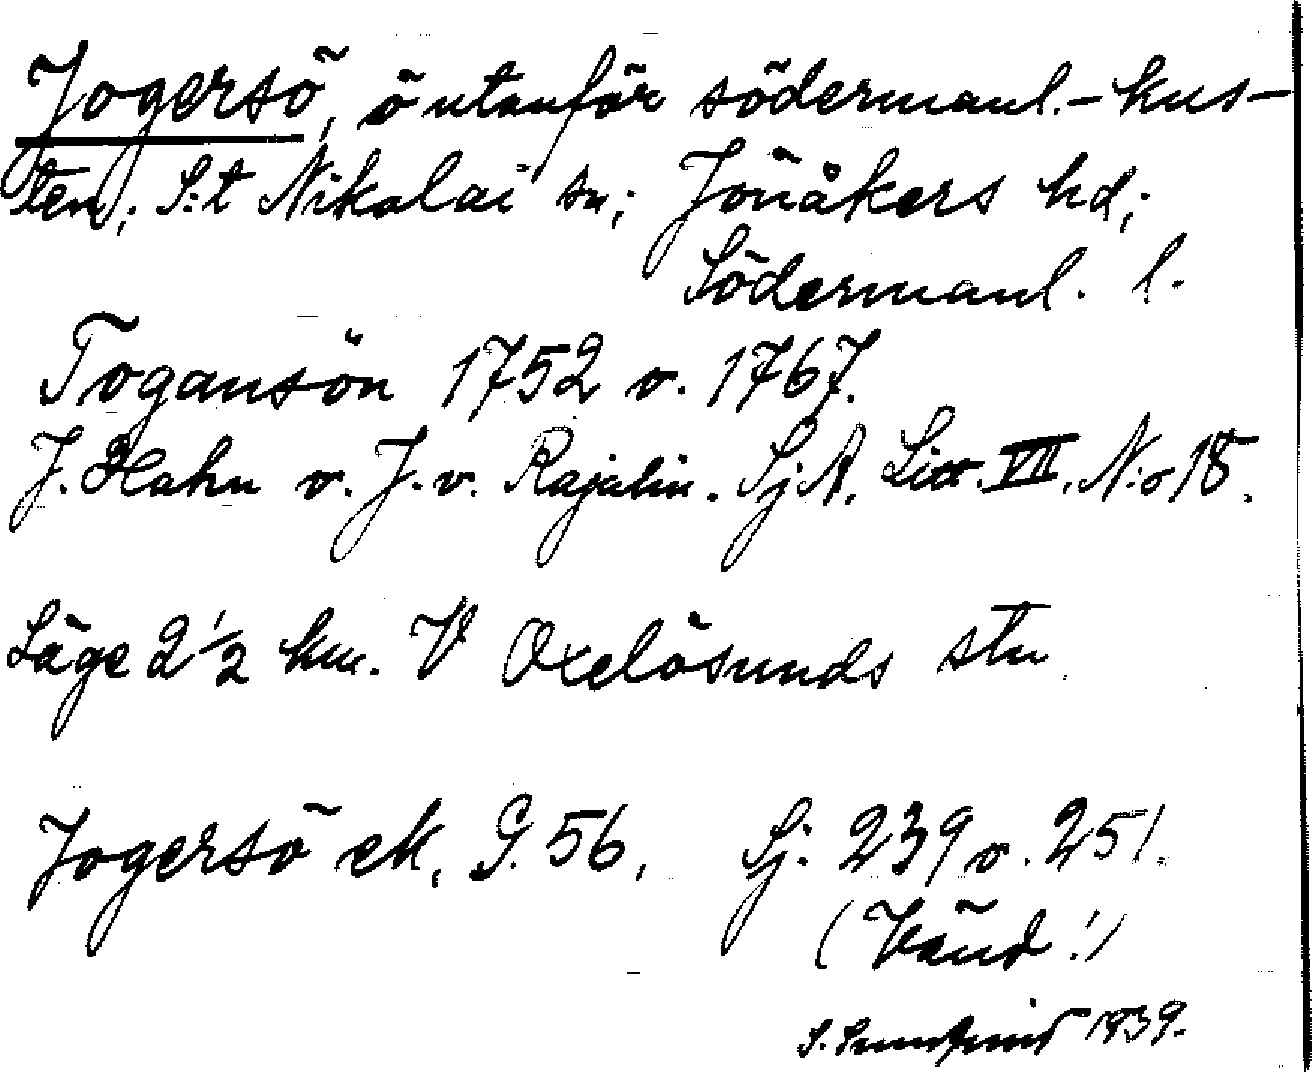 Jogersö, ö utanför södermanl.-kus-
ten; S:t Nikolai sn; Jönåkers hd;
Södermanl. l.
Togansön 1752 o. 1767.
J. Hahn o. J. v. Rajalin. SjA. Litt. VII, N:o 18.
Läge 2 1/2 km. V Oxelösunds stn
Jogersö ek. G. 56. Sj. 239 o. 251.
(Vänd!)
S. 1939.